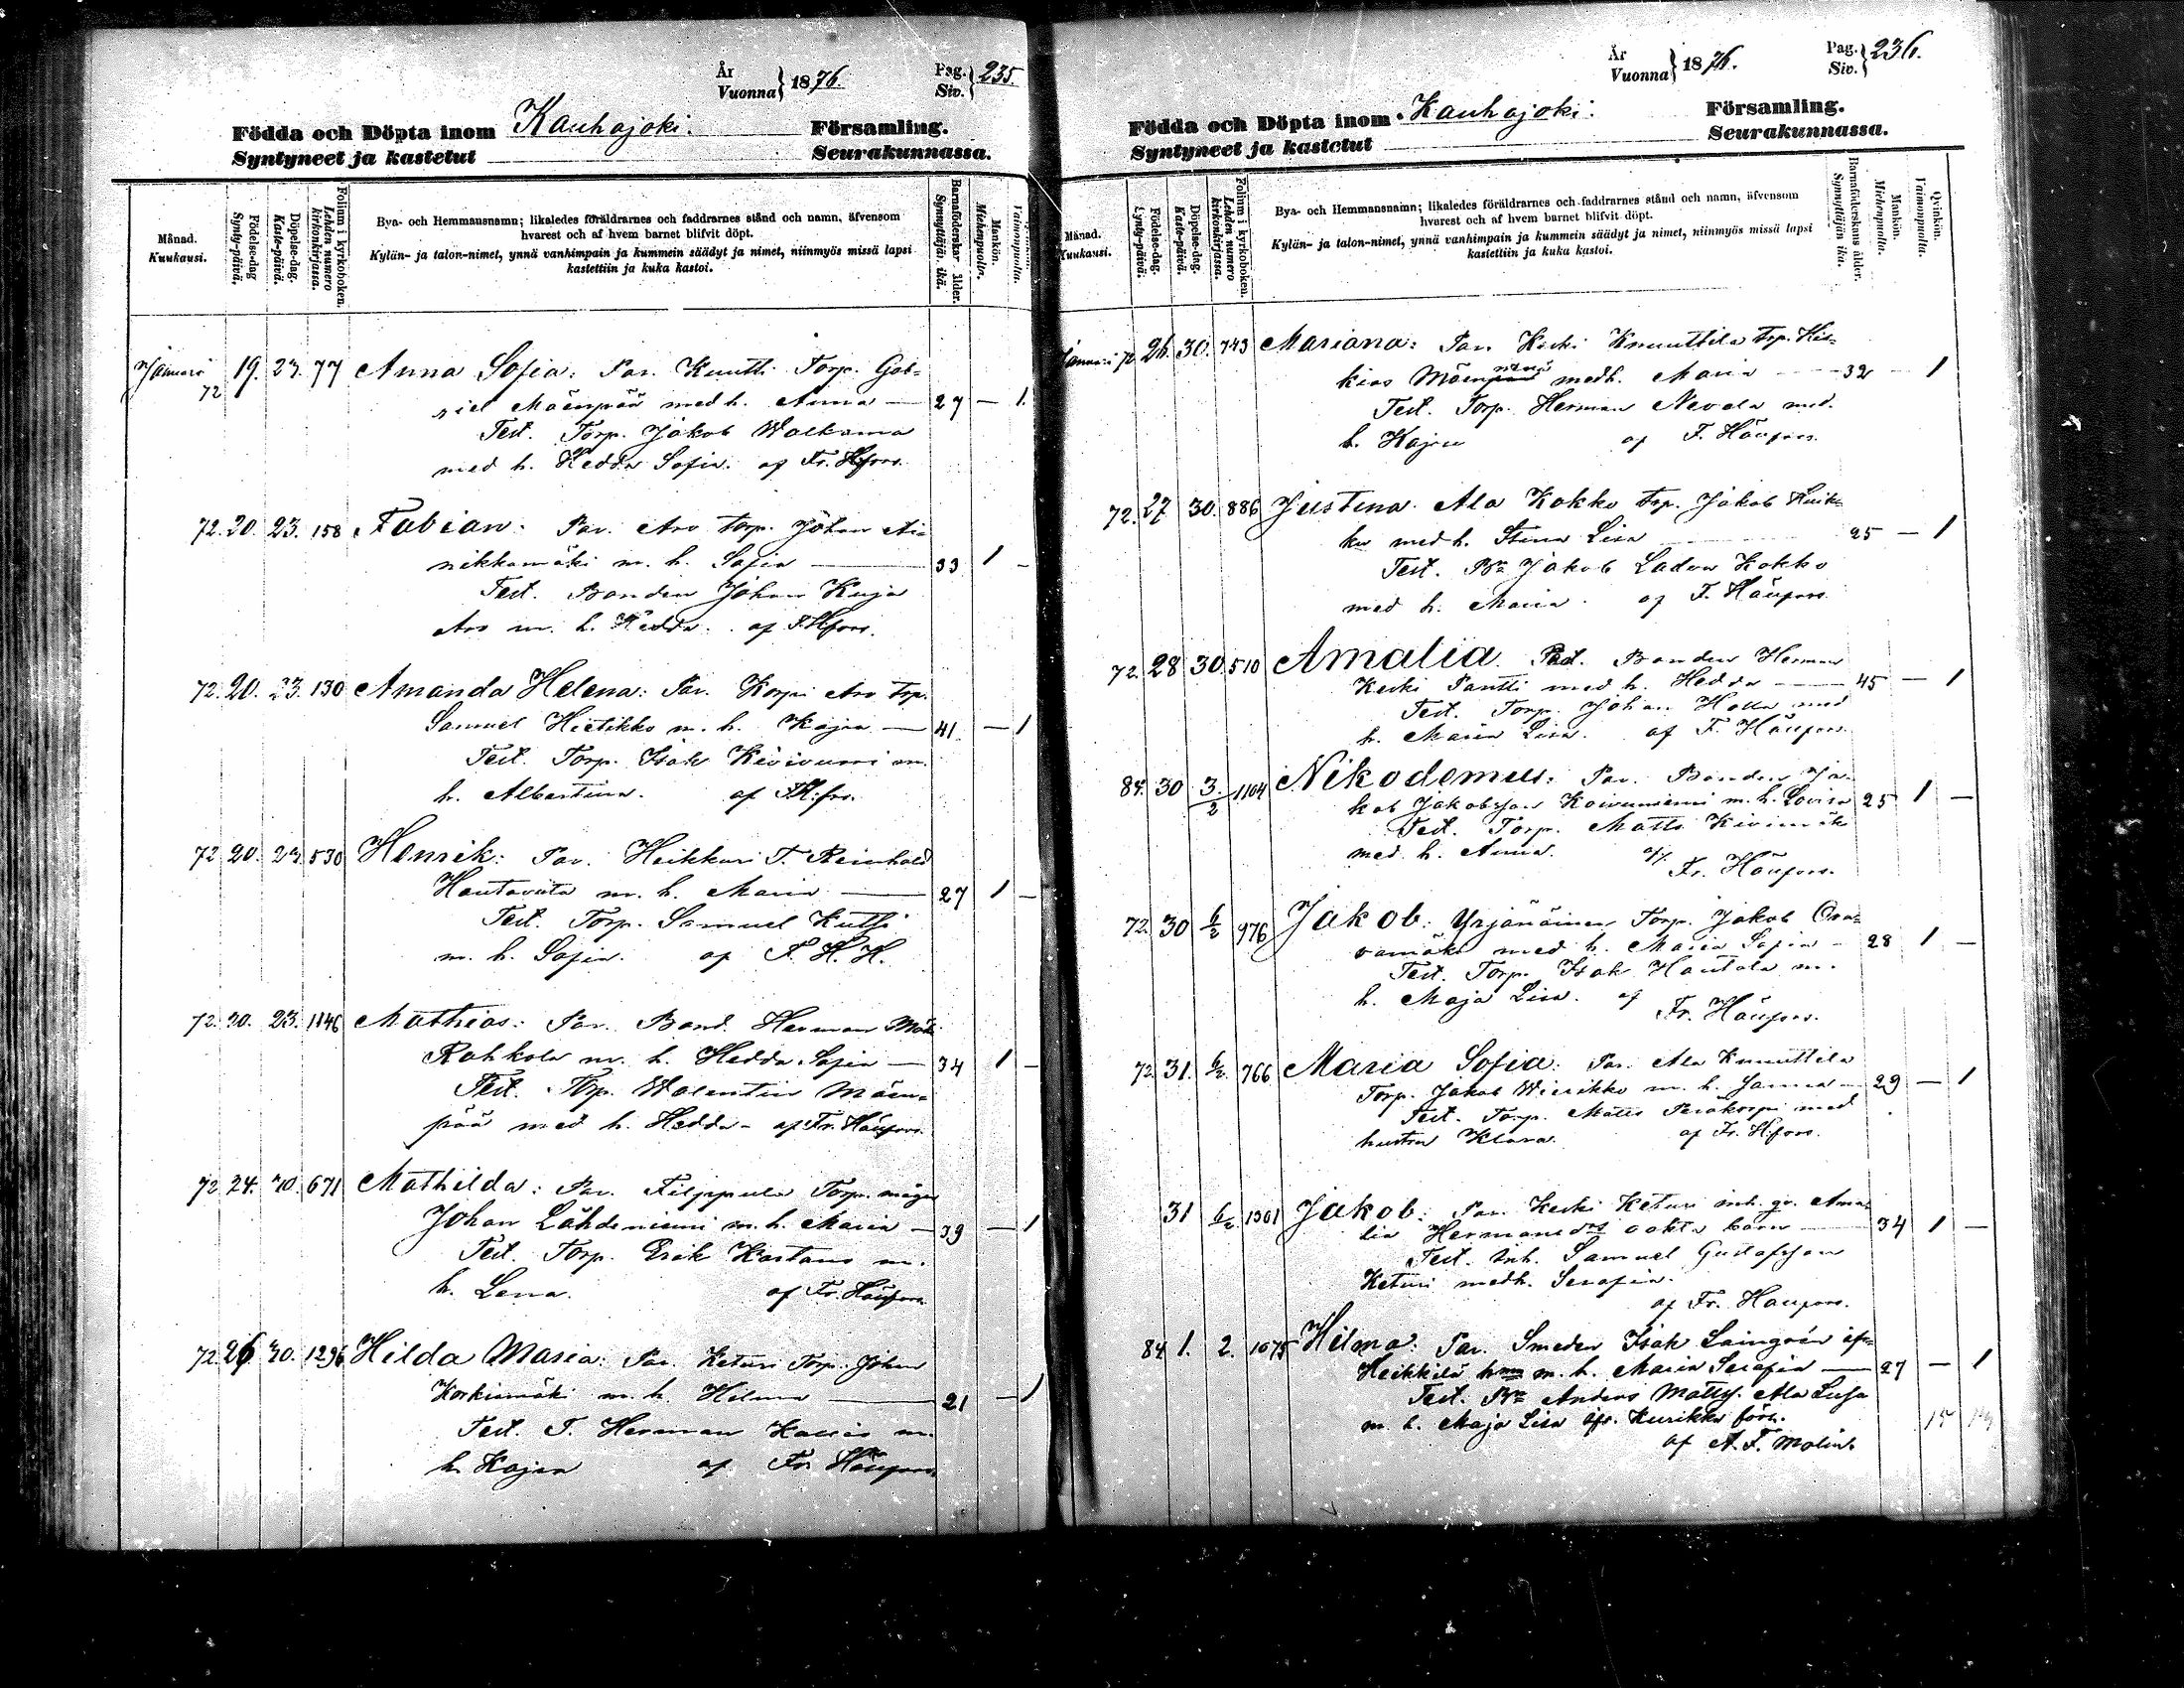 År
Vuonna } 1876.
Pag.
Siv. } 235.
Födda och Döpta inom Kauhajoki. Församling.
Syntyneet ja kastetut Seurakunnassa.
Månad.
Kuukausi.
Födelse-dag
Synty-päivä.
Döpelse-dag.
Kaste-päivä.
Folium i kyrkoboken.
Lehden numero kirkonkirjassa.
Bya- och Hemmansnamn; likaledes föräldrarnes och faddrarnes stånd och namn, äfvensom
hvarest och af hvem barnet blifvit döpt.
Kylän- ja talon-nimet, ynnä vanhimpain ja kummein säädyt ja nimet, niinmyös missä lapsi
kastettiin ja kuka kastoi.
Barnaföderskas ålder.
Synnyttäjän ikä.
Mankön.
Miehenpuolta.
Vaimonpuolta.
Januari 19. 23. 77 Anna Sofia: Par. Knutti Torp. Gab-
72 riel Mäenpää med h. Anna — 27 — 1.
Test. Torp. Jakob Walkama
med h. Hedda Sofia. af Fr. Hfors.
72. 20. 23. 158 Fabian. Par. Aro torp. Johan Ai-
nikkamäki m. h. Sofia — 33 1 —
Test. Bonden Johan Kuja
Aro m. h. Hedda. af F. Hfors.
72. 20. 23. 130 Amanda Helena: Par. Korpi Aro Trp.
Samuel Hietikko m. h. Kajsa — 41 — 1
Test. Torp. Isak Kivivuori m.
h. Albertina. af F. H.fors.
72 20. 23. 530 Henrik: Par. Heikkuri T. Reinhold
Hautaviita m. h. Maria — 27 1 —
Test. Torp. Samuel Kutsi
m. h. Sofia. af F. H. H.
72. 20. 23. 1146 Mathias: Par. Bond. Herman
Rahkola m. h. Hedda Sofia — 34 1 —
Test. Torp. Walentin Mäen-
pää med h. Hedda - af Fr. Häufors.
72 24. 30. 671 Mathilda: Par. Filppula Torp. mågen
Johan Lähdeniemi m. h. Maria — 39 — 1
Test. Torp. Erik Kartano m.
h. Lena. af Fr. Häufors
72. 26 30. 1296 Hilda Maria: Par. Keturi Torp. Johan
Korkiamäki m. h. Hilma — 21 — 1
Test. T. Herman m.
h. Kajsa af Fr. Häufors
År
Vuonna } 1876.
Pag.
Siv. } 236.
Födda och Döpta inom Kauhajoki. Församling.
Syntyneet ja kastetut Seurakunnassa.
Månad.
Kuukausi.
Födelse-dag.
Synty-päivä.
Döpelse-dag.
Kaste-päivä.
Folium i kyrkoboken.
Lehden numero kirkonkirjassa.
Bya- och Hemmansnamn; likaledes föräldrarnes och faddrarnes stånd och namn, äfvensom
hvarest och af hvem barnet blifvit döpt.
Kylän- ja talon-nimet, ynnä vanhimpain ja kummein säädyt ja nimet, niinmyös missä lapsi
kastettiin ja kuka kastoi.
Barnaföderskans ålder.
Synnyttäjän ikä.
Mankön.
Miehenpuolta.
Qvinkön.
Vaimonpuolta.
Januari 72 26. 30. 743 Mariana: Par. Keski Knuuttila trp. His-
kias medh. Maria — 32 — 1
Test. Torp. Herman Nevala med
h. Kajsa af F. Häufors.
72. 27 30. 886 Justina. Ala Kokko trp. Jakob
med h. Stina Lisa 25 — 1
Test. Bn Jakob Ladon Kokko
med h. Maria. af F. Häufors.
72. 28 30. 510 Amalia. Bonden Herman
Keski Pantti med h. Hedda — 45 — 1
Test. Torp. Johan med
h. Maria Lisa. af F. Häufors.
84. 30 3/2 1104 Nikodemus: Par. Bonden Ja-
kob Jakobsson Koivuniemi m. h. Lovisa 25 1 —
Test. Torp. Matts Kivimäki
med h. Anna. af
Fr. Häufors.
72. 30 6/2 976 Jakob. Yrjänäinen Torp. Jakob Ora-
vamäki med h. Maria Sofia - 28 1 —
Test. Torp. Isak Hautala m.
h. Maja Lisa. af
Fr. Häufors.
72. 31. 6/2 766 Maria Sofia: Par. Ala Knuuttila
Torp. Jakob m. h. Sanna — 29 — 1
Test. Torp. Matts Peräkorpi med
hustru Klara. af Fr. Hfors.
31 6/2 1301 Jakob: Par. Keski Keturi inh. qv. Ama-
lia Hermansdr oäkta barn — 34 1 —
Test. inh. Samuel Gustafsson
Keturi medh. Serafia.
af Fr. Häufors.
84 1. 2. 1075 Hilma: Par. Smeden Isak
Heikkilä hmn m. h. Maria Serafia — 27 — 1
Test. Bn Anders Matts. Ala
m. h. Maja Lisa Kurikka förs. 15
af A. F. Molin.